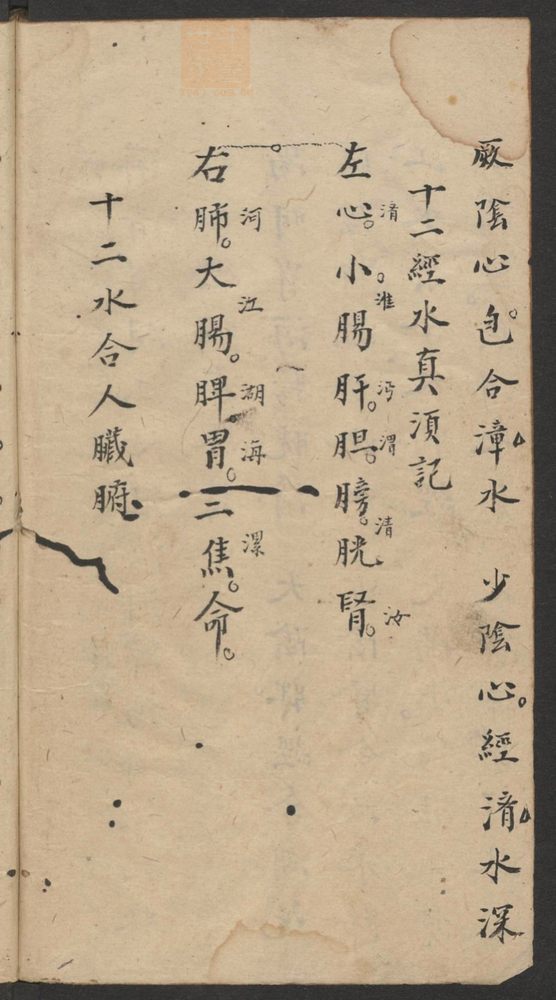 厥陰心包合漳水　少陰心經淯水深
十二經水真須記
左心淯小腸淮肝沔胆渭膀胱清腎汝
右肺河大腸江脾湖胃海三焦漯命
十二水合人臟腑